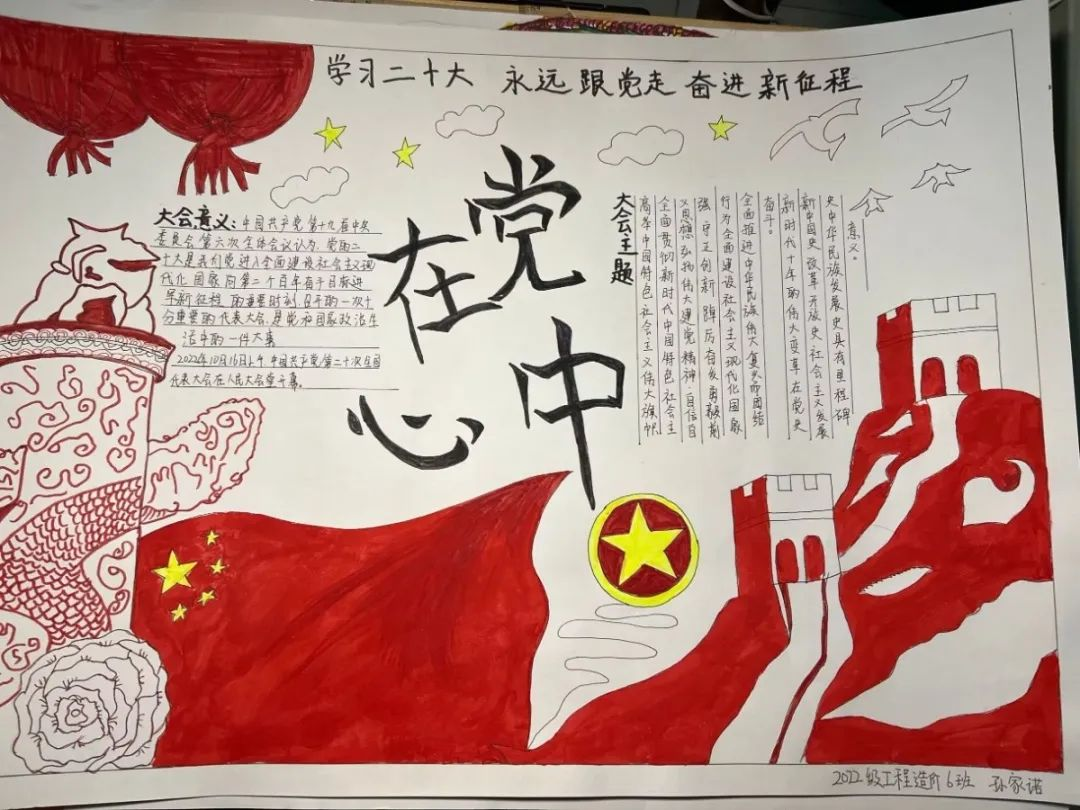 学习二十大 永远跟党走 奋进新征程
党
在
中
心
大会意义:中国共产党第十九届中央
委员会第六次全体会议认为,党的二
十大是我们党进入全面建设社会主义现
代化国家向第二个百年奋斗目标进
军新征程的重要时刻召开的一次十
分重要的代表大会,是党和国家政治生
活中的一件大事
2022年10月16日上午中国共产党第二十次全国
代表大会在人民大会堂开幕。
大会主题
高举中国特色社会主义伟大旗帜
全面贯彻新时代中国特色社会主
义思想弘扬伟大建党精神 自信自
强 守正创新 踔厉奋发勇毅前
行为全面建设社会主义现代化国家
全面推进中华民族伟大复兴而团结
奋斗。
新时代十年的伟大变革在党史
新中国史 改革开放史 社会主义发展
史中华民族发展史具有里程碑
意义。
2022级工程造价6班 孙家诺